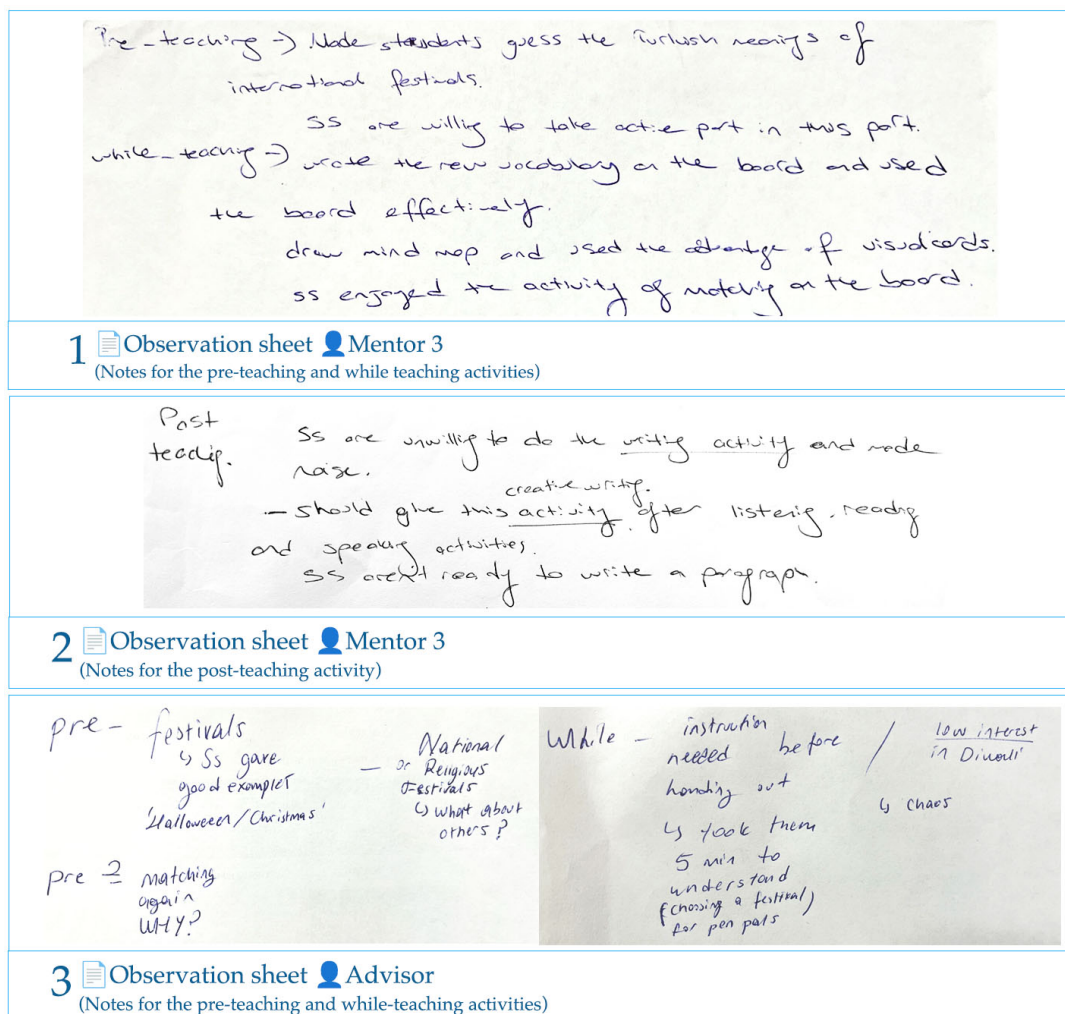 Pre-teaching → Made students guess the Turkish meanings of
international festivals.
SS are willing to take active part in this part.
while-teaching → wrote the new vocabulary on the board and used
the board effectively.
draw mind map and used the advantage of visualcards.
ss engaged the activity of matching on the board.
1 Observation sheet Mentor 3
(Notes for the pre-teaching and while teaching activities)
Post
teaching.
Ss are unwilling to do the writing activity and made
noise.
creative writing.
- should give this activity after listening, reading
and speaking activities.
SS aren't ready to write a paragraph.
2 Observation sheet Mentor 3
(Notes for the post-teaching activity)
pre - festivals
↳ Ss gave
good examples
'Halloween/Christmas'
- National
or Religious
Festivals
↳ what about
others?
pre 2 matching
again
WHY?
While - instruction
needed before
handing out
↳ took them
5 min to
understand
(choosing a festival)
for pen pals
/ low interest
in Diwali
↳ chaos
3 Observation sheet Advisor
(Notes for the pre-teaching and while-teaching activities)